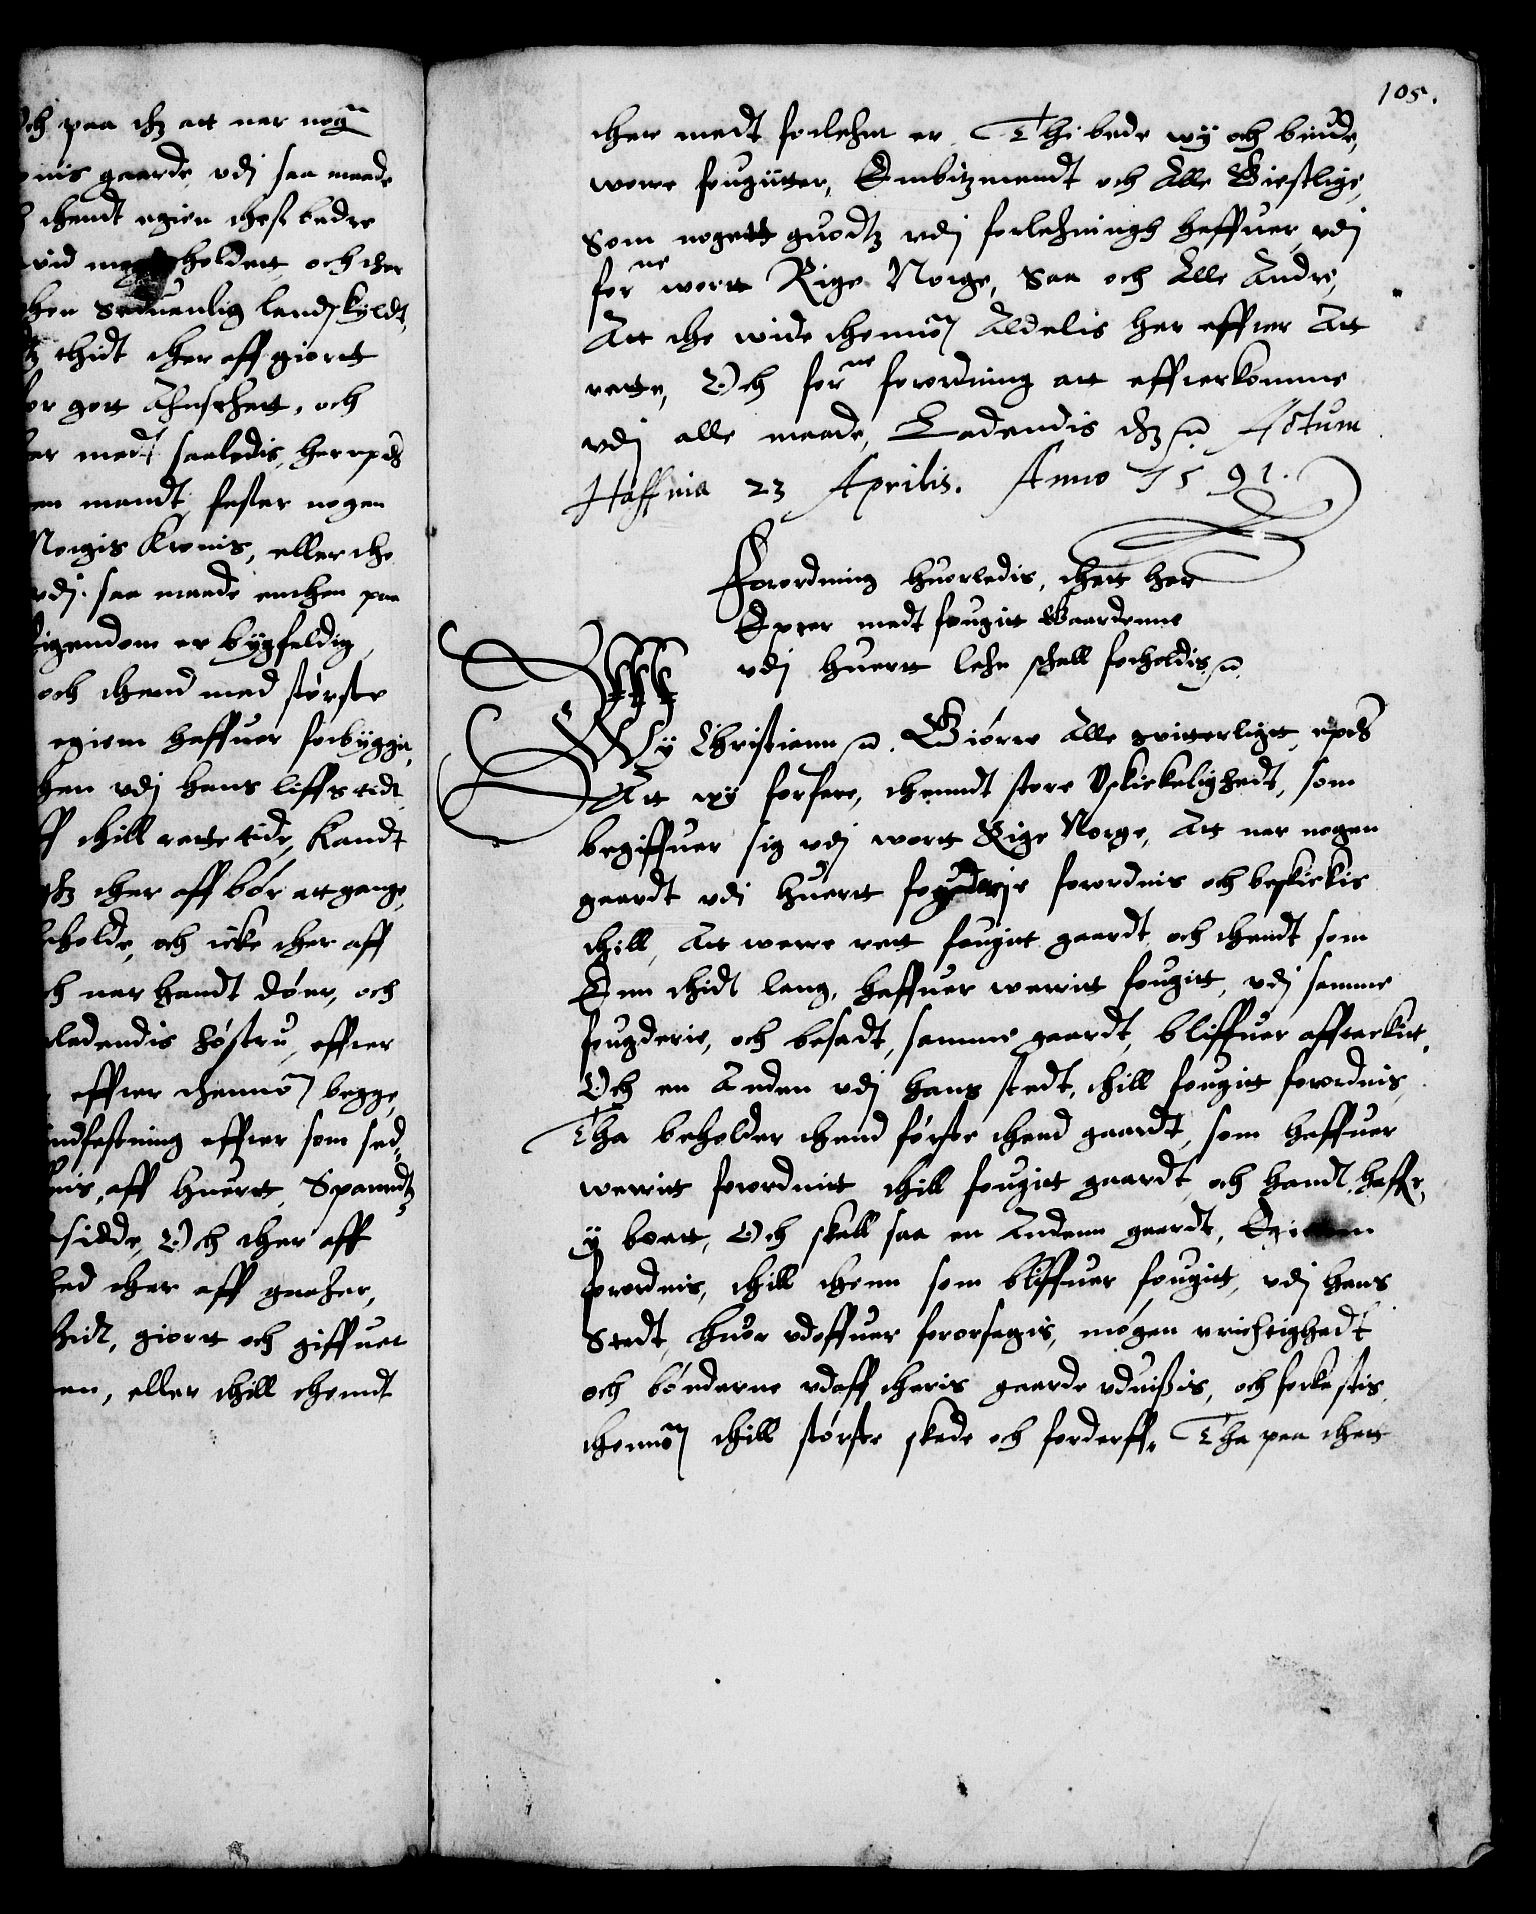 och paa thz att nar nogn
onis gaarde, vdj saa maade
thendt egien thess bedre
vid holdett, och ther
then Seduanlig landskyldt,
thidt ther aff giortt
for gott Ahnsehett, och
medt saaledis, her epter
en mandt, fester nogen
Norgis Kronis, eller the
vdj saa maade enthen paa
Eigendom er bygfeldig,
och thend med største
egien haffuer forbyggit,
then vdj hans liffs tidt
thill rette tide, Kandt
thz ther aff bør att gange,
beholde, och icke ther aff
och nar handt døer, och
ladendis høstru, effter
effter thennom begge,
Indfestning effter som sed
aff huertt, Spanndtz
sidde, Och ther aff
ther aff gaaher,
thidt, giortt och giffuet
en, eller thill thendt
105.
ther medt forlehnt er, Thi bede wy och biude,
wore fougitter, Embitzmendt och Alle Giestlige,
Som nogett guodtz vdj forlehningh haffuer, vdj
forne wortt Rige Norge, Saa och Alle Andre,
Att the wide thennom Aldelis her effter Att
rette, Och forne forordning att effterkomme
vdj alle maade, Ladendis thz Actum
Haffnia 23 Aprilis. Anno 1591.
Forordning huorledis, thett her
Epter medt fougitt Gaardenne
vdj huertt lehn schall forholdis
Wy Christiann Giørre Alle witterligtt,
Att wy forfare, thenndt store Vskickelighedt, som
begiffuer sig vdj wortt Rige Norge, Att nar nogen
gaardt vdj huertt fogderje forordnis och beskickis
thill, Att were rett fougitt gaardt, och thendt som
Enn thidt lang, haffuer werritt fougitt, vdj samme
fougderie, och besadt, samme gaardt, bliffuer affsettit,
Och en Anden vdj hans stedt, thill fougitt forordnis,
Tha beholder thend første thend gaardt, som haffuer
werritt forordnitt thill fougitt gaardt, och handt haffr,
y boett, Och skall saa en Andenn gaardt,
forordnis, thill thenn som bliffuer fougitt, vdj hans
Stedt, huor vdoffuer forорsagis, mögen vrichtighedt
och bønderne vdaff theris gaarde vduissis, och forkastis,
thennom thill største skade och forderff, Tha paa thett